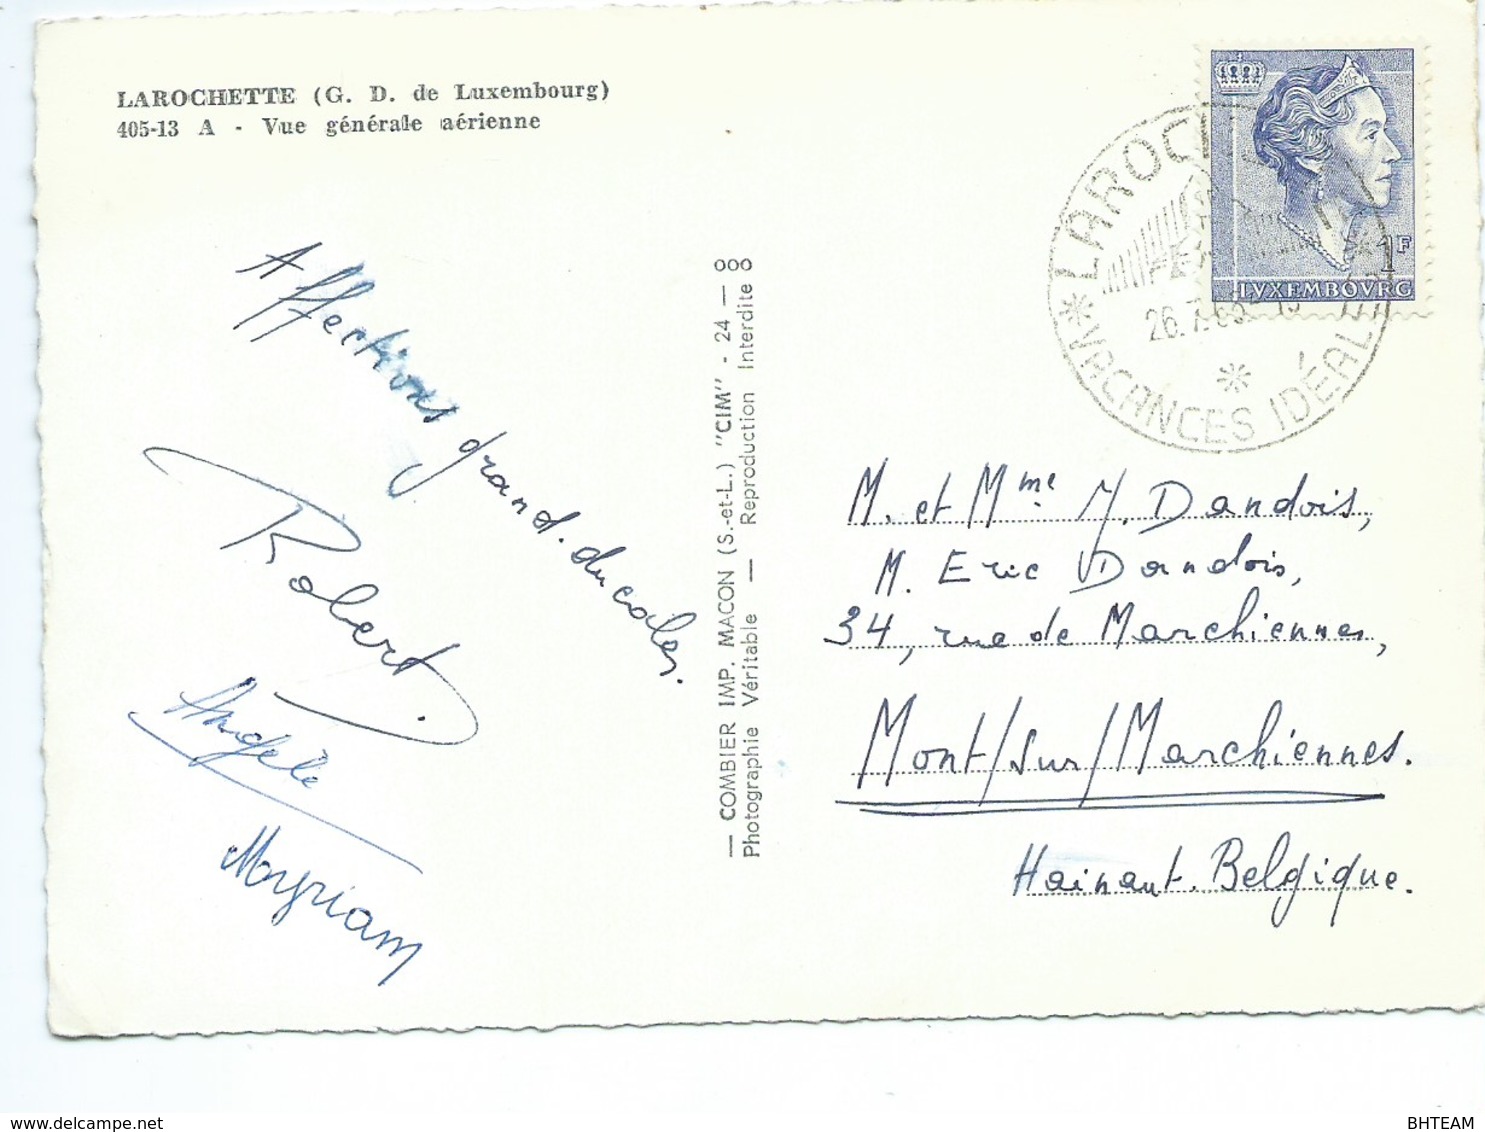 LAROCHETTE (G. D. de Luxembourg)
405-13 A - Vue générale aérienne
Affections grand-ducales.
Robert.
Angèle
Myriam
— COMBIER IMP. MACON (S.-et-L.) "CIM" - 24 — ooo
Photographie Véritable — Reproduction Interdite
1F
LVXEMBOVRG
VACANCES IDÉALES
M. et Mme J. Dandois,
M. Eric Dandois,
34, rue de Marchiennes,
Mont/sur/Marchiennes.
Hainaut. Belgique.
www.delcampe.net
BHTEAM